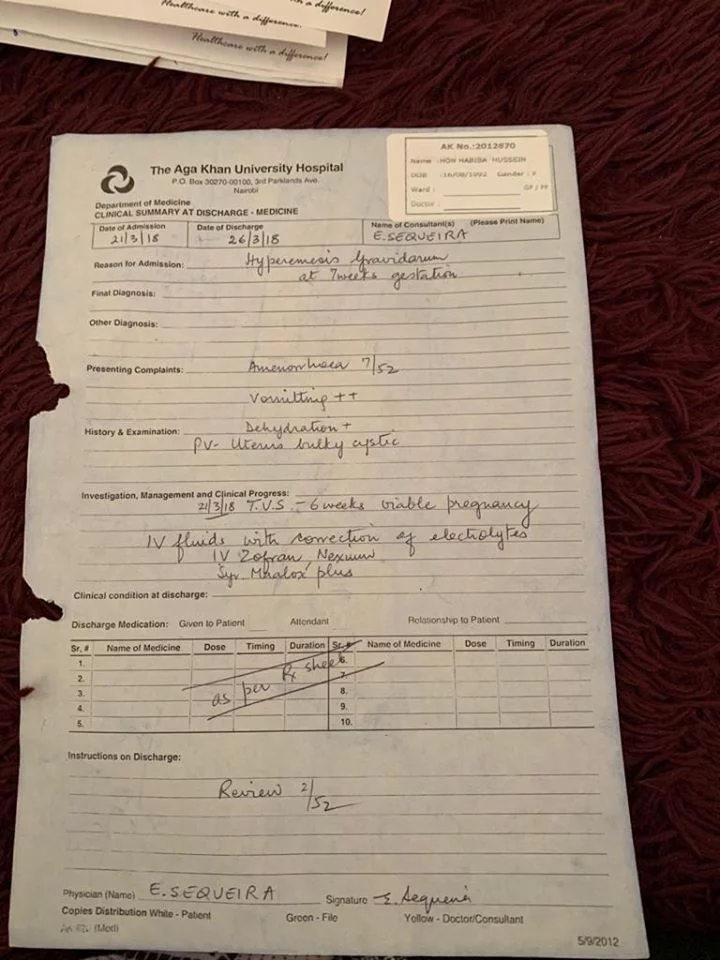 Healthcare with a difference!
Healthcare with a difference!
AK No.:2012670
Name :HON HABIBA HUSSEIN
DOB :16/08/1992 Gender : F
Ward : GP / PP
Doctor :
The Aga Khan University Hospital
P.O. Box 30270-00100, 3rd Parklands Ave.
Nairobi
Department of Medicine
CLINICAL SUMMARY AT DISCHARGE - MEDICINE
Date of Admission Date of Discharge Name of Consultant(s) (Please Print Name)
21/3/18 26/3/18 E.SEQUEIRA
Reason for Admission: Hyperemesis Gravidarum
at 7weeks gestation
Final Diagnosis:
Other Diagnosis:
Presenting Complaints: Amenorrhoea 7/52
Vomitting ++
History & Examination: Dehydration +
PV- Uterus bulky cystic
Investigation, Management and Clinical Progress:
21/3/18 T.V.S. - 6 weeks viable pregnancy
IV fluids with correction of electrolytes
IV Zofran, Nexium
Syr. Maalox plus
Clinical condition at discharge:
Discharge Medication: Given to Patient Attendant Relationship to Patient
Sr. # Name of Medicine Dose Timing Duration Sr. # Name of Medicine Dose Timing Duration
1. 6.
2. 7.
3. 8.
4. 9.
5. 10.
as per Rx sheet
Instructions on Discharge:
Review 2/52
Physician (Name) E.SEQUEIRA Signature E. Sequeira
Copies Distribution White - Patient Green - File Yellow - Doctor/Consultant
5/9/2012